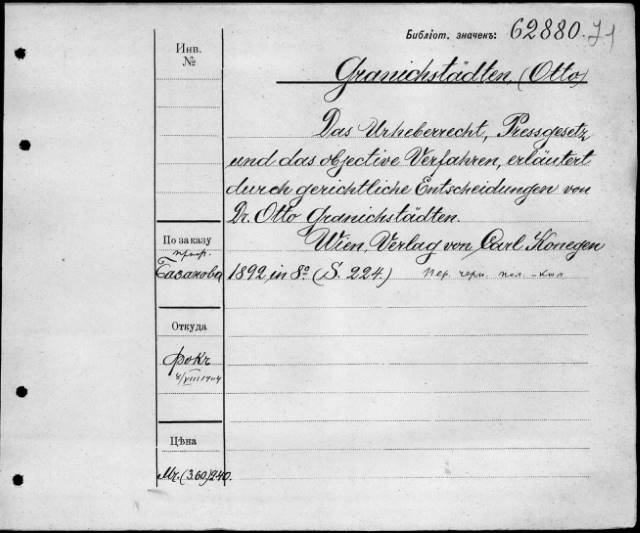 Библіот. значекъ: 62880.
Инв.
№
Granichstädten, (Otto)
Das Urheberrecht, Pressgesetz
und das objective Verfahren, erläutert
durch gerichtliche Entscheidungen von
Dr. Otto Granichstädten.
По заказу
проф.
Базанова
Wien, Verlag von Carl Konegen
1892, in 8º (S. 224.) пер. черн. пол.-кол
Откуда
Фокъ
4/VIII 1904
Цѣна
Mr. (3.60) 240.